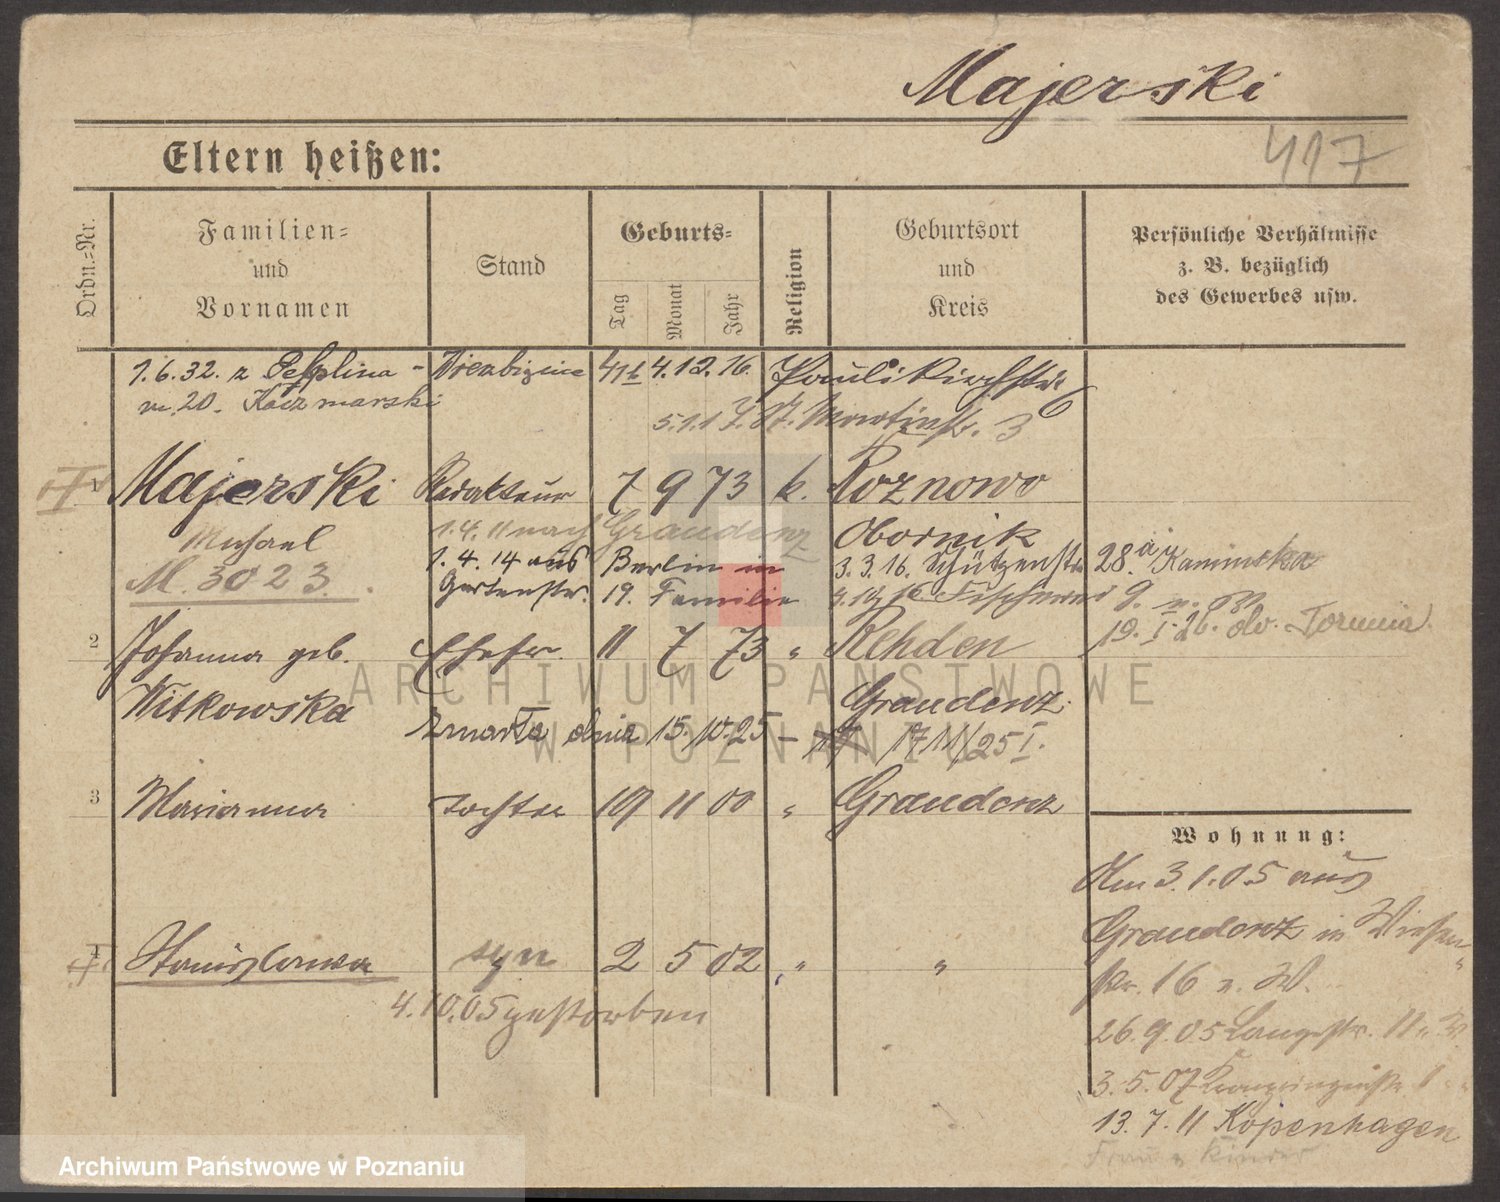 Majerski
417
Eltern heißen:
Ordn.-Nr.
Familien-
und
Vornamen
Stand
Geburts-
Tag
Monat
Jahr
Religion
Geburtsort
und
Kreis
Persönliche Verhältnisse
z. B. bezüglich
des Gewerbes usw.
1.6.32. z Pelplina - Wierzbięcice 4.12.16. Paulikirchstr.
m. 20. Kaczmarski
5.1.17. St. Martinstr. 3
1 Majerski Redakteur 7 9 73 k. Roznowo
Michael 1.4.11 nach Graudenz Obornik
M. 3023. 1.4.14 aus Berlin in 3.3.16. Schützenstr. 28a Kaminska
Gartenstr. 19. Familie Fischerei 9.
19. I. 26. do Torunia.
2 Johanna geb. Ehefr. 11 7 73 " Rehden
Witkowska Graudenz
zmarła dnia 15.10.25 - 17/11/25 I.
3 Marianna Tochter 19 11 00 " Graudenz
Wohnung:
Am 3.1.05 aus
Graudenz in Wiesen
str. 16 v. W.
4 Stanislawa syn 2 5 02 " "
4.10.05 gestorben
26.9.05 Langestr. 11
3.5.07
13.7.11 Kopenhagen
Frau u Kinder
ARCHIWUM PAŃSTWOWE
W POZNANIU
Archiwum Państwowe w Poznaniu